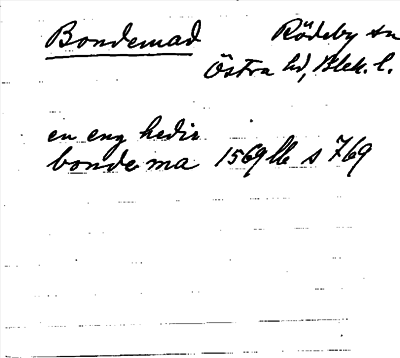 Bondemad Rödeby sn
Östra hd, Blek. l.
en eng hedir
bonde ma 1569 Llb s 769